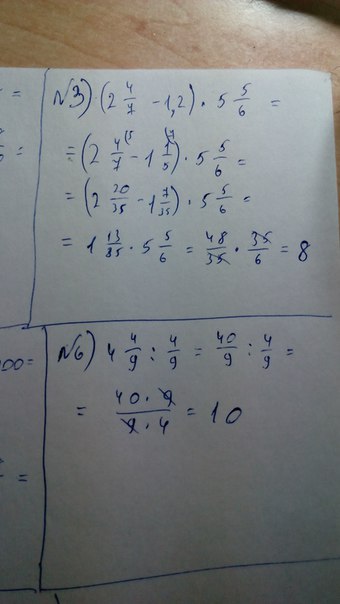 =
=
№3) (2 4/7 - 1,2) · 5 5/6 =
= (2 4/7 (5 - 1 1/5 (7) · 5 5/6 =
= (2 20/35 - 1 7/35) · 5 5/6 =
= 1 13/35 · 5 5/6 = 48/35 · 35/6 = 8
00=
№6) 4 4/9 : 4/9 = 40/9 : 4/9 =
= 40 · 9 / 9 · 4 = 10
=